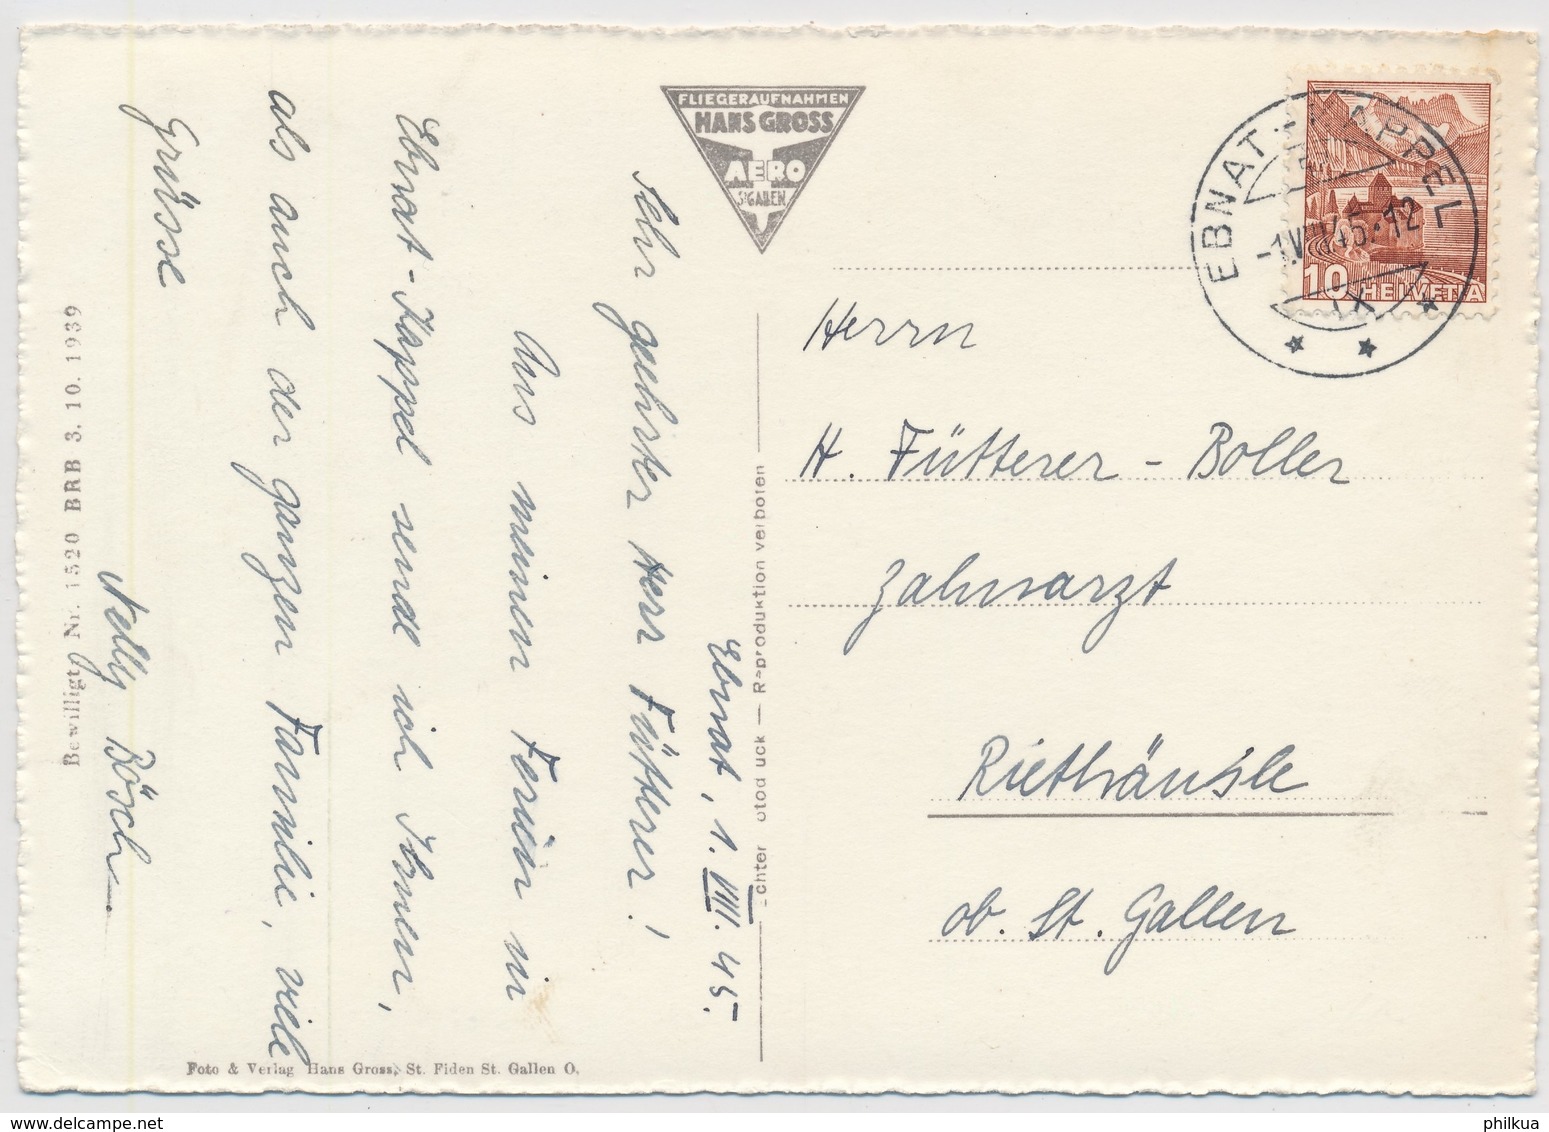 FLIEGERAUFNAHMEN
HANS GROSS
AERO
ST GALLEN
EBNAT-KAPPEL
-1.VIII.45.-12
IX
10 HELVETIA
Ebnat, 1. VIII. 45.
Sehr geehrter Herr Fütterer!
Aus meinen Ferien in
Ebnat-Kappel sende ich Ihnen,
als auch der ganzen Familie, viele
Grüsse
Nelly Bösch.
Herrn
H. Fütterer-Boller
Zahnarzt
Riethäusle
ob. St. Gallen
Echter otod uck — Reproduktion verboten
Bewilligt Nr. 1520 BRB 3. 10. 1939
Foto & Verlag Hans Gross, St. Fiden St. Gallen O.
philkua
delcampe.net